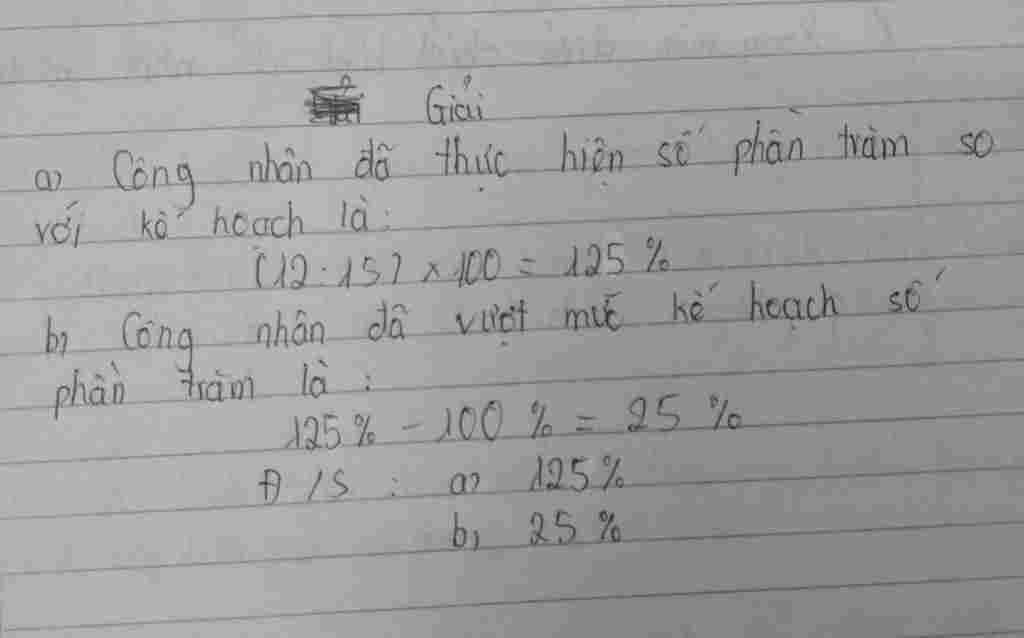 Giải
a) Công nhân đã thực hiện số phần trăm so
với kế hoạch là:
(12:15) × 100 = 125%
b) Công nhân đã vượt mức kế hoạch số
phần trăm là:
125% - 100% = 25%
Đ/S: a) 125%
b) 25%